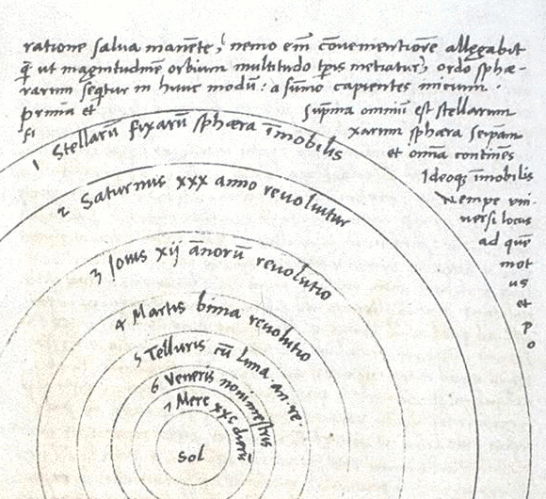 ratione salua manēte, nemo em̄ cōuenientiorē allegabit
q̄ ut magnitudinē orbium multitudo tp̄is metiatur, ordo sphæ-
rarum seq̄tur in hunc modū: a sūmo capientes inicium.
prima et suprima omniū est stellarum
fi xarum sphæra seipam
et omnia continēs
Ideoq̨ īmobilis
Nempe vni-
uersi locus
ad quē
mot
us
et
p
o
1 Stellarū fixarū sphæra īmobilis
2 Saturnus xxx anno reuoluitur
3 Iouis xij annorū reuolutio
4 Martis bima reuolutio
5 Telluris cū Luna an. re.
6 Veneris nonimestris
7 Merc xxc dierū
Sol